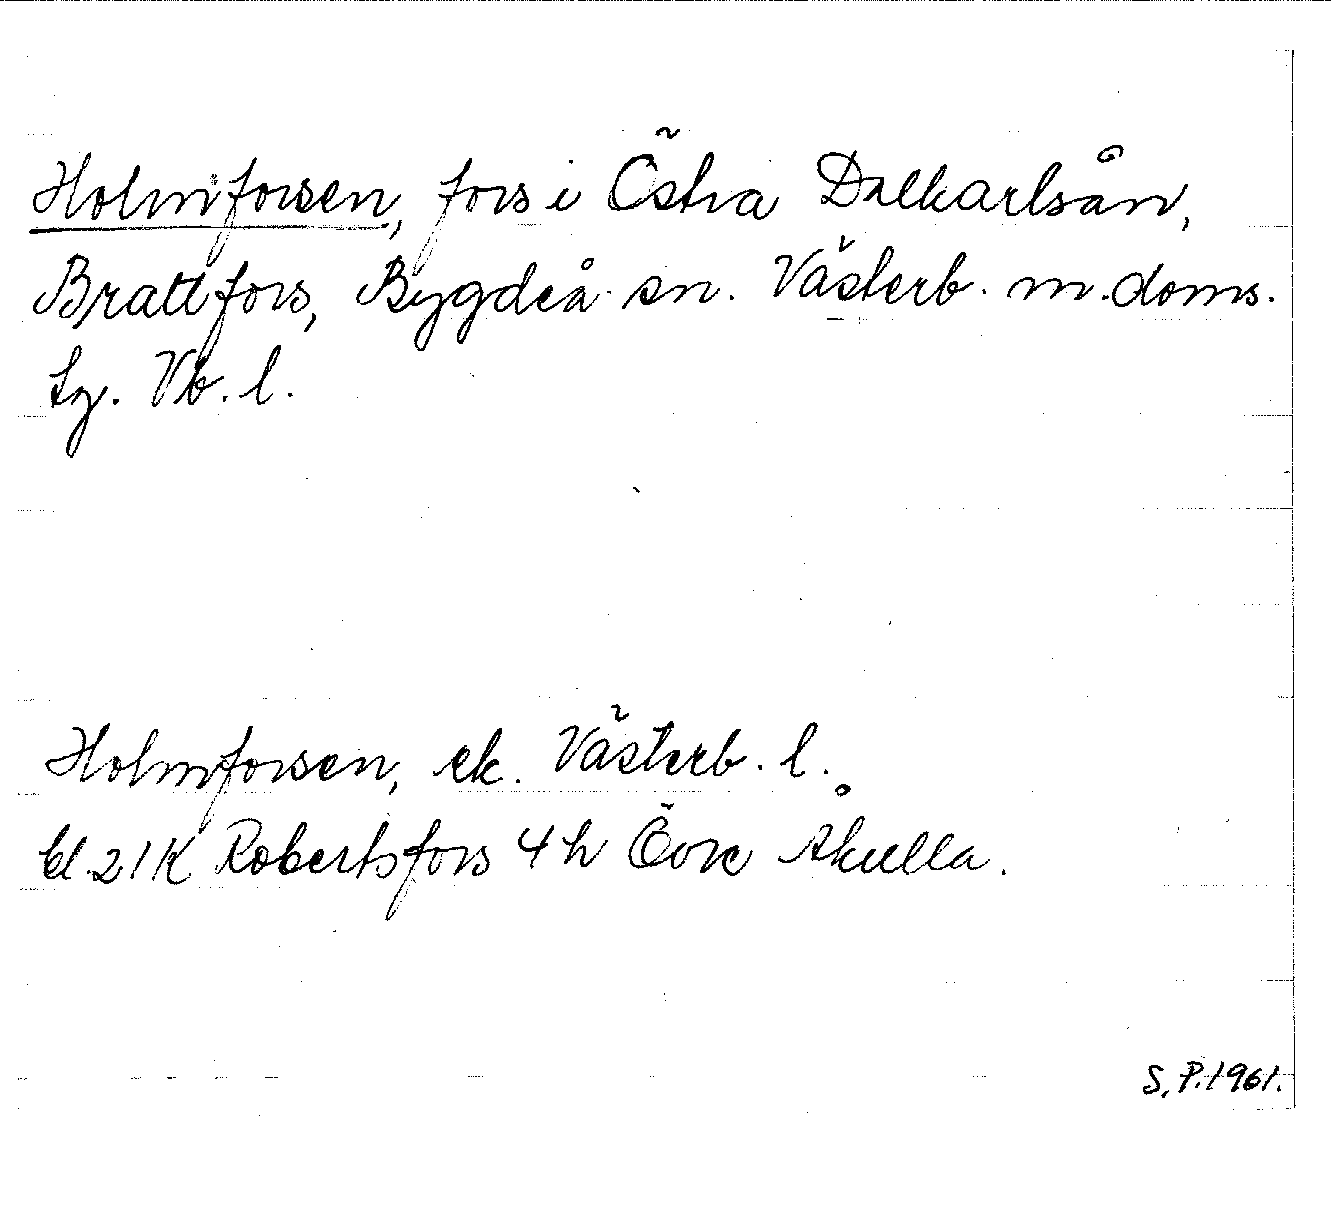 Holmforsen, fors i Östra Dalkarlsån,
Brattfors, Bygdeå sn. Västerb. m. doms.
tg. Vb. l.
Holmforsen, ek. Västerb. l.
bl. 21K Robertsfors 4h Övre Åkulla.
S.P. 1961.